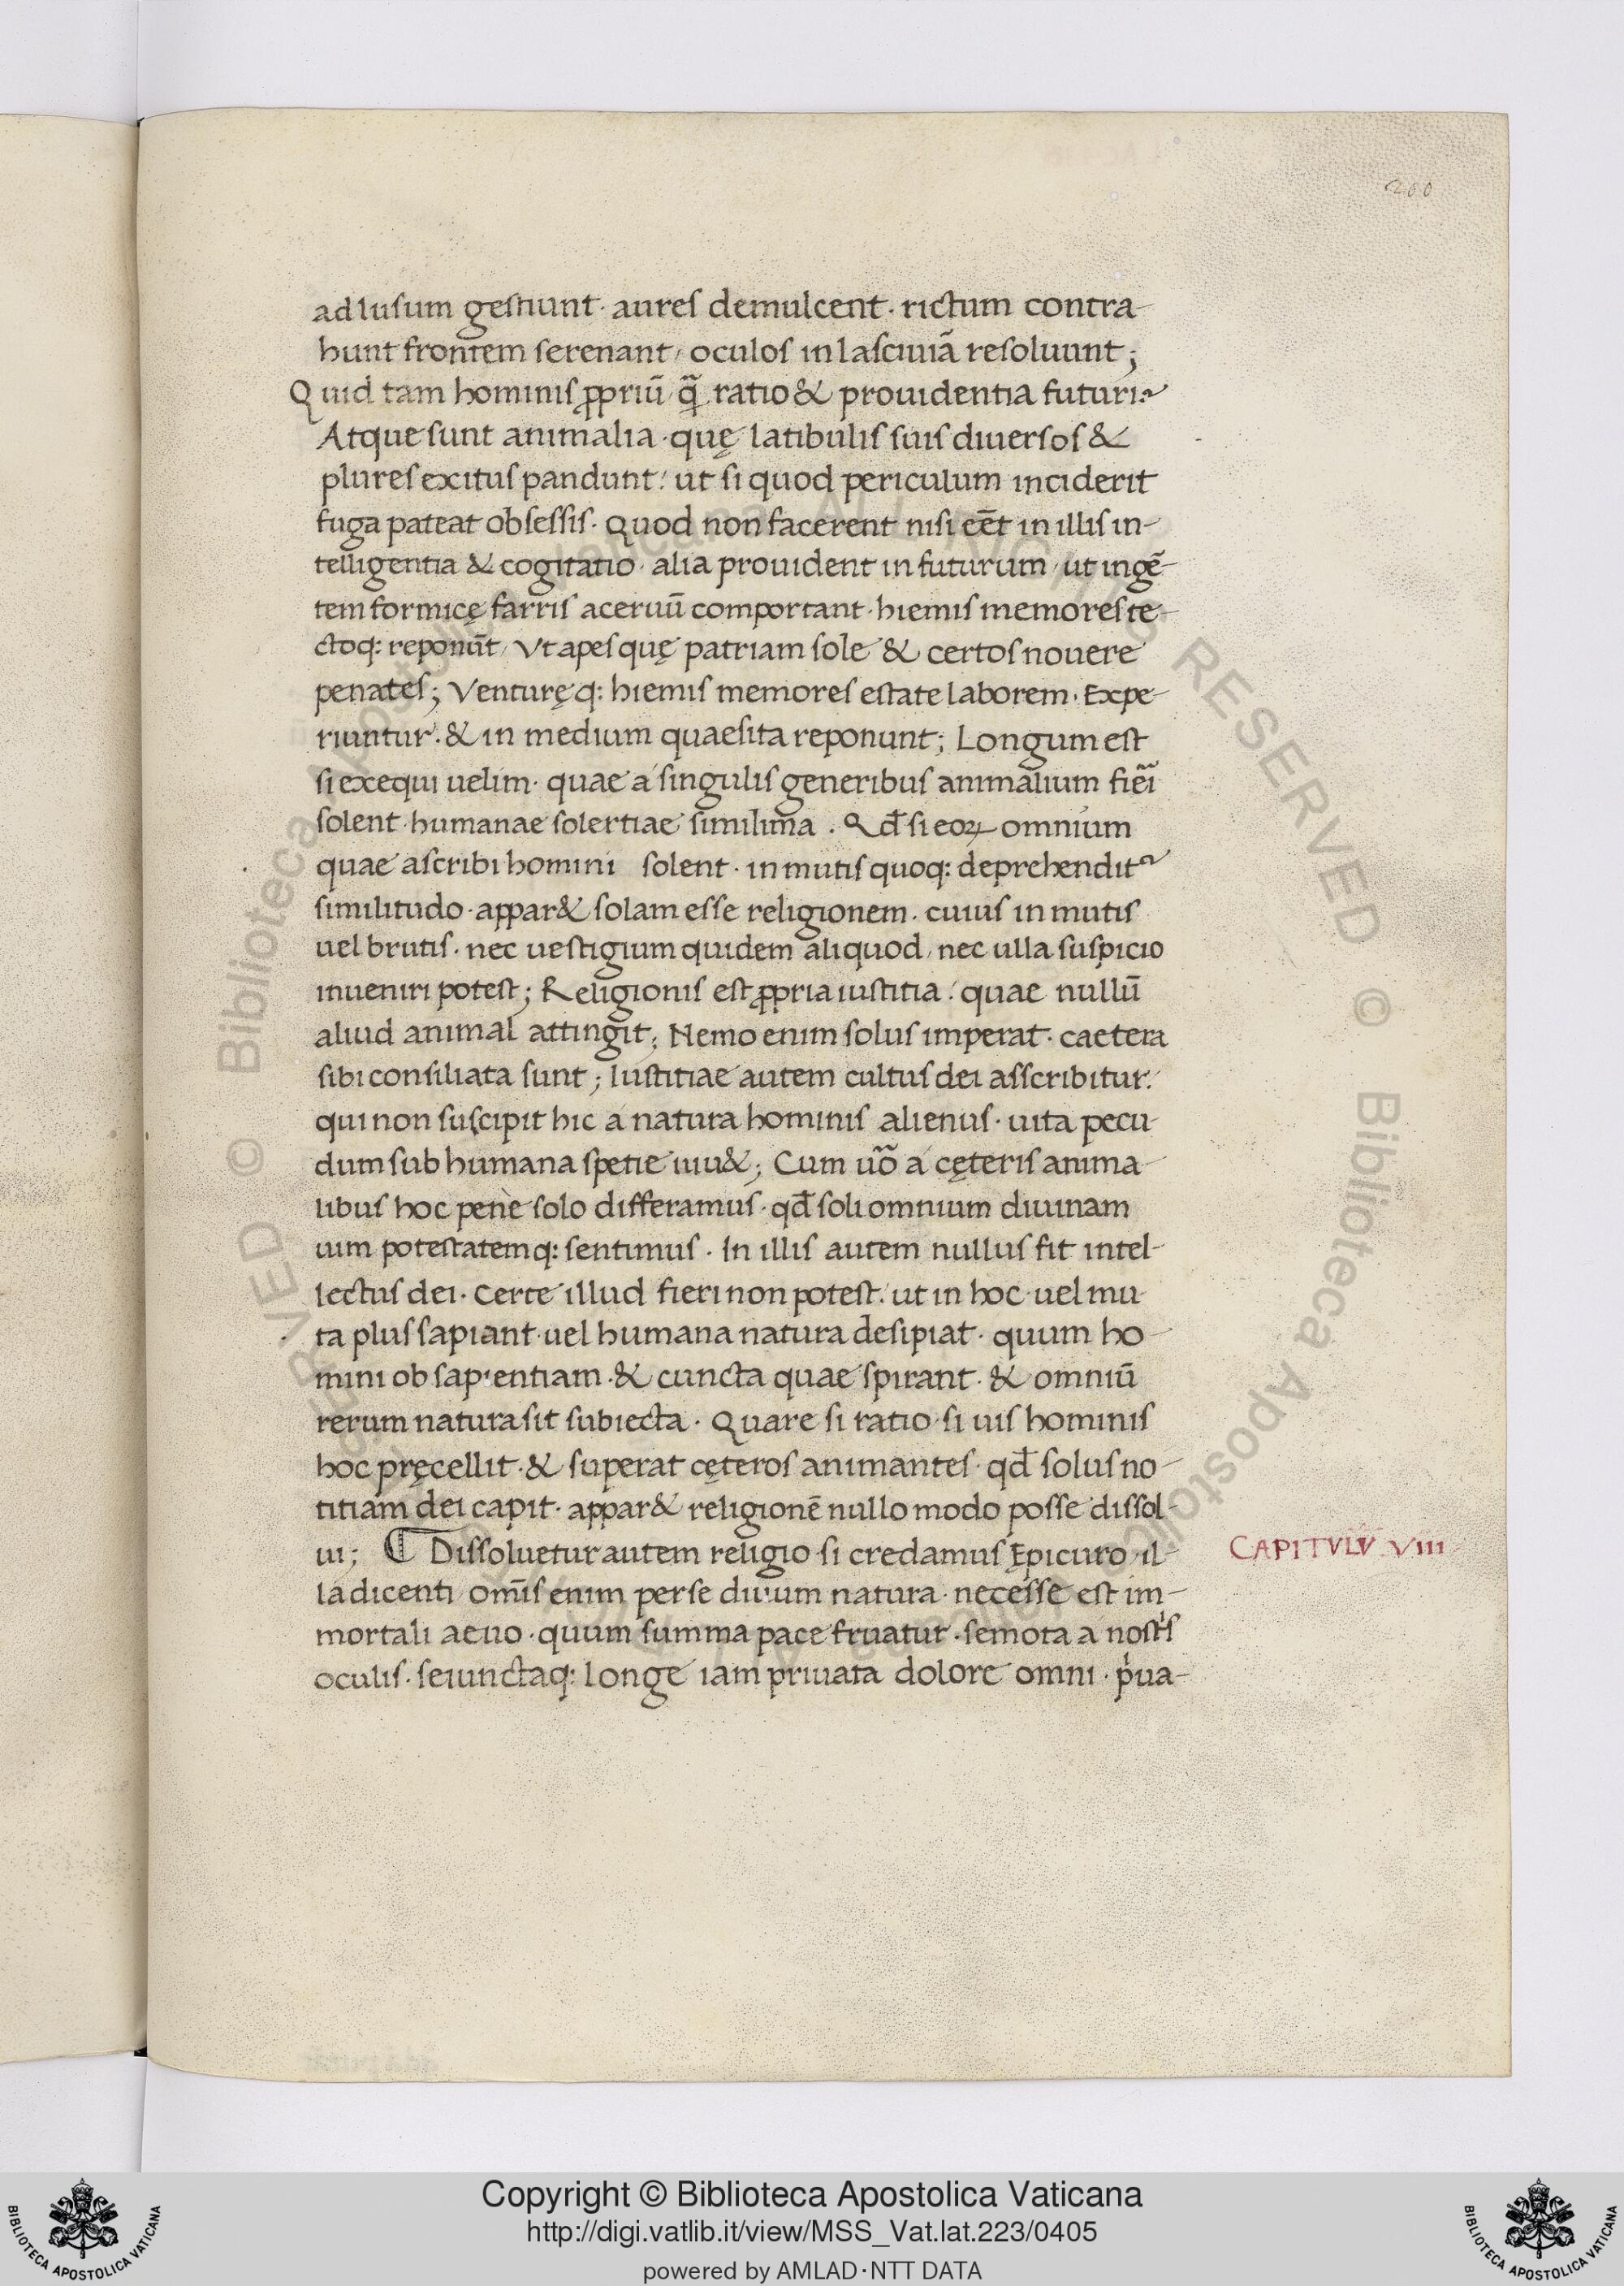 200
ad lusum gestiunt · aures demulcent · rictum contra-
hunt frontem serenant, oculos in lasciuiã resoluunt;
Quid tam hominis ꝓpriũ, q̃ ratio & prouidentia futuri?
Atque sunt animalia · quę latibulis suis diuersos &
plures exitus pandunt: ut si quod periculum inciderit
fuga pateat obsessis. Quod non facerent nisi eẽt in illis in-
telligentia & cogitatio, alia prouident in futurum, ut ingẽ-
tem formicę farris aceruũ comportant, hiemis memores te-
ctoq: reponũt, Vt apes quę patriam sole & certos nouere
penates; Venturęq: hiemis memores estate laborem. Expe-
riuntur. & in medium quaesita reponunt; Longum est
si exequi uelim. quae a singulis generibus animalium fieri
solent humanae solertiae similima. Qđ si eoꝝ omnium
quae ascribi homini solent. in mutis quoq: deprehendit᷑
similitudo. appar& solam esse religionem. cuius in mutis
uel brutis. nec uestigium quidem aliquod, nec ulla suspicio
inueniri potest; Religionis est ꝓpria iustitia: quae nullũ
aliud animal attingit; Nemo enim solus imperat. caetera
sibi consiliata sunt; Iustitiae autem cultus dei asscribitur:
qui non suscipit hic a natura hominis alienus. uita pecu-
dum sub humana spetie uiu&; Cum uõ a cęteris anima-
libus hoc penè solo differamus. qđ soli omnium diuinam
uim potestatemq: sentimus. In illis autem nullus fit intel-
lectus dei. Certe illud fieri non potest: ut in hoc uel mu-
ta plus sapiant uel humana natura desipiat. quum ho-
mini ob sapientiam. & cuncta quae spirant. & omniũ
rerum natura sit subiecta. Quare si ratio si uis hominis
hoc pręcellit. & superat cęteros animantes. qđ solus no-
titiam dei capit. appar& religionẽ nullo modo posse dissol-
ui; ¶ Dissoluetur autem religio si credamus Epicuro il-
la dicenti, om̃is enim per se diuum natura. necesse est im-
mortali aeuo. quum summa pace fruatur. semota a nost͛s
oculis. seiunctaq: longe iam priuata dolore omni. p͛ua-
CAPITVLV̄ VIII
Copyright © Biblioteca Apostolica Vaticana
http://digi.vatlib.it/view/MSS_Vat.lat.223/0405
powered by AMLAD·NTT DATA
BIBLIOTECA APOSTOLICA VATICANA
BIBLIOTECA APOSTOLICA VATICANA